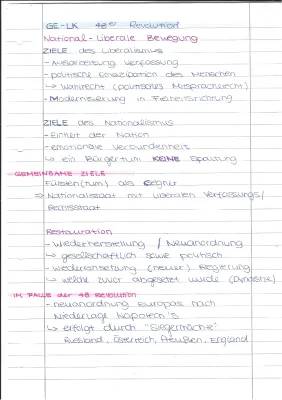 GE-LK 48er Revolution
National-Liberale Bewegung
ZIELE des Liberalismus
- Ausarbeitung Verfassung
- politische Emanzipation des Menschen
↳ Wahlrecht (politisches Mitspracherecht)
- Modernisierung in Freiheitsrichtung
ZIELE des Nationalismus
- Einheit der Nation
- emotionale Verbundenheit
↳ ein Bürgertum KEINE Spaltung
GEMEINSAME ZIELE
Fürsten(tum) als Gegner
⇒ Nationalstaat mit liberalen Verfassungs/
Rechtsstaat
Restauration
- Wiederherstellung / Neuanordnung
↳ gesellschaftlich sowie politisch
- Wiedereinsetzung (neuer) Regierung
↳ welche zuvor abgesetzt wurde (Dynastie)
IM FALLE der 48 Revolution
- Neuanordnung Europas nach
Niederlage Napoleon's
↳ erfolgt durch "Siegermächte"
Russland, Österreich, Preußen, England